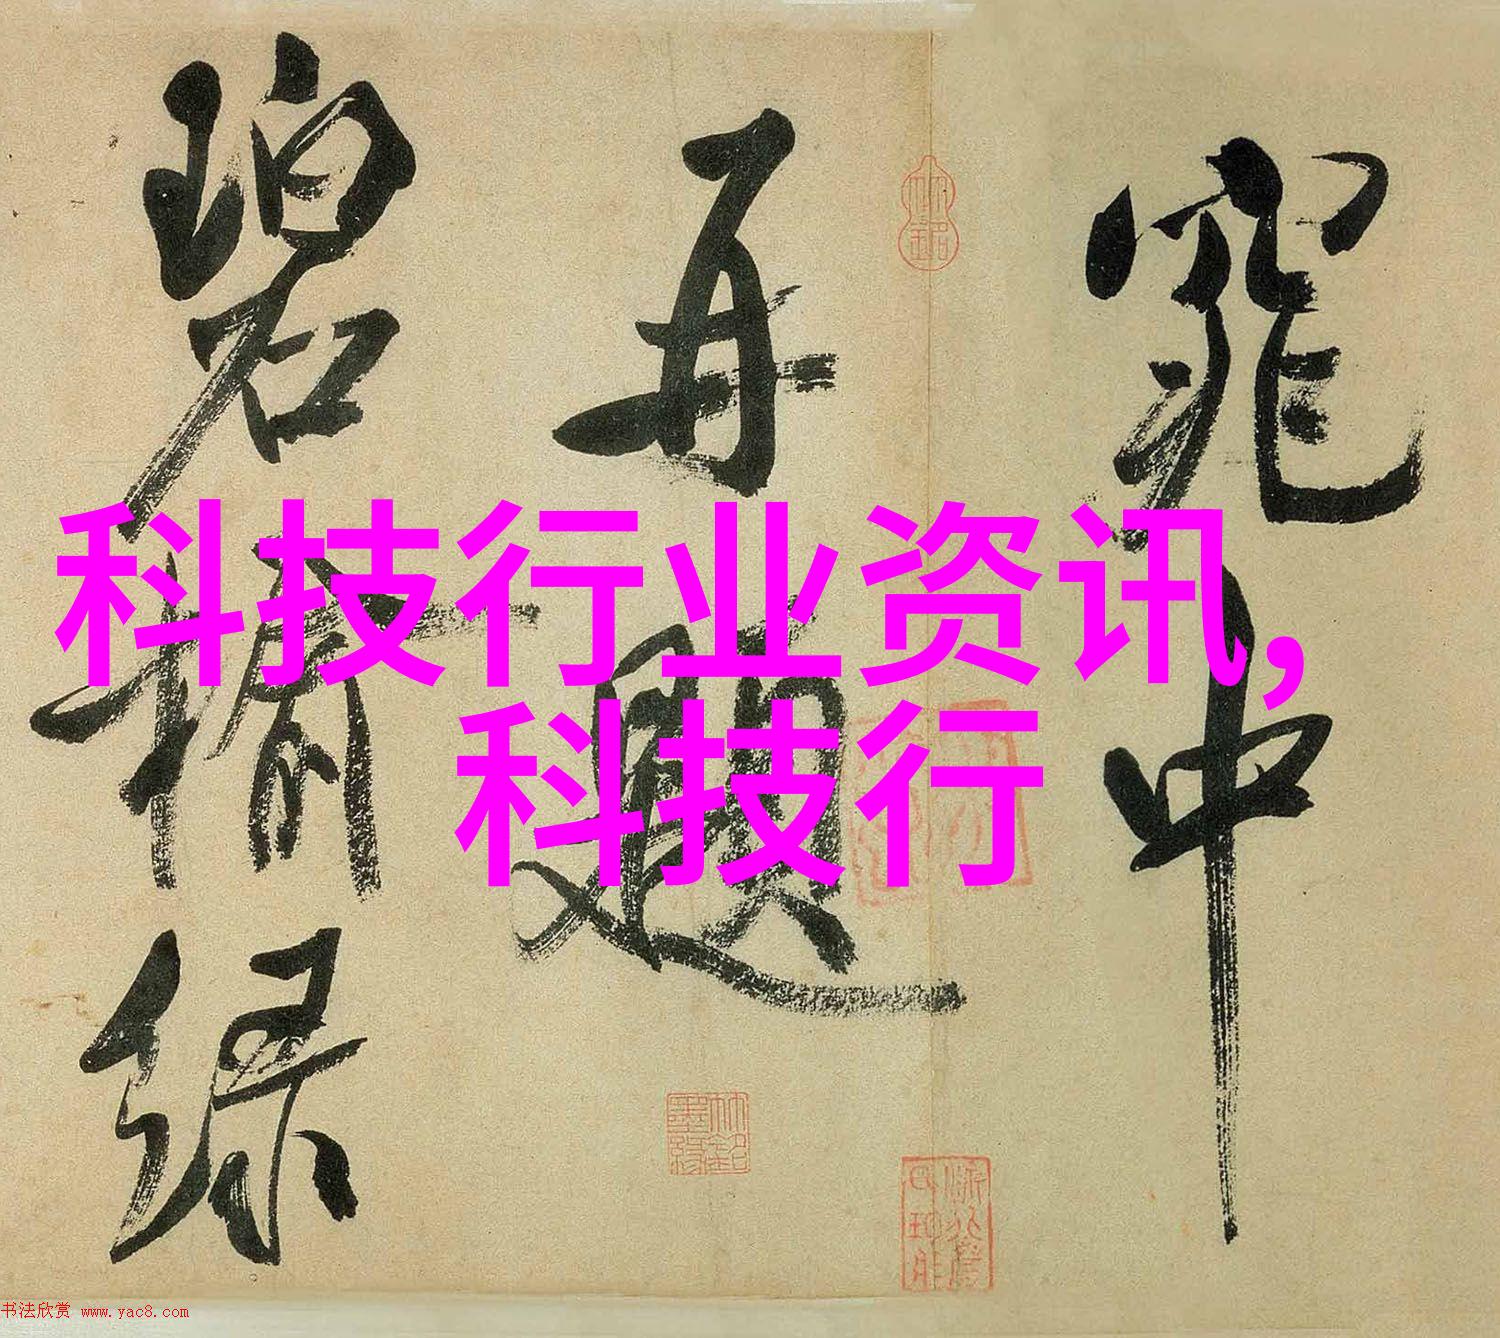 窕中
再題
碧榆綠
科技行业资讯,
科技行
书法欣赏 www.yac8.com